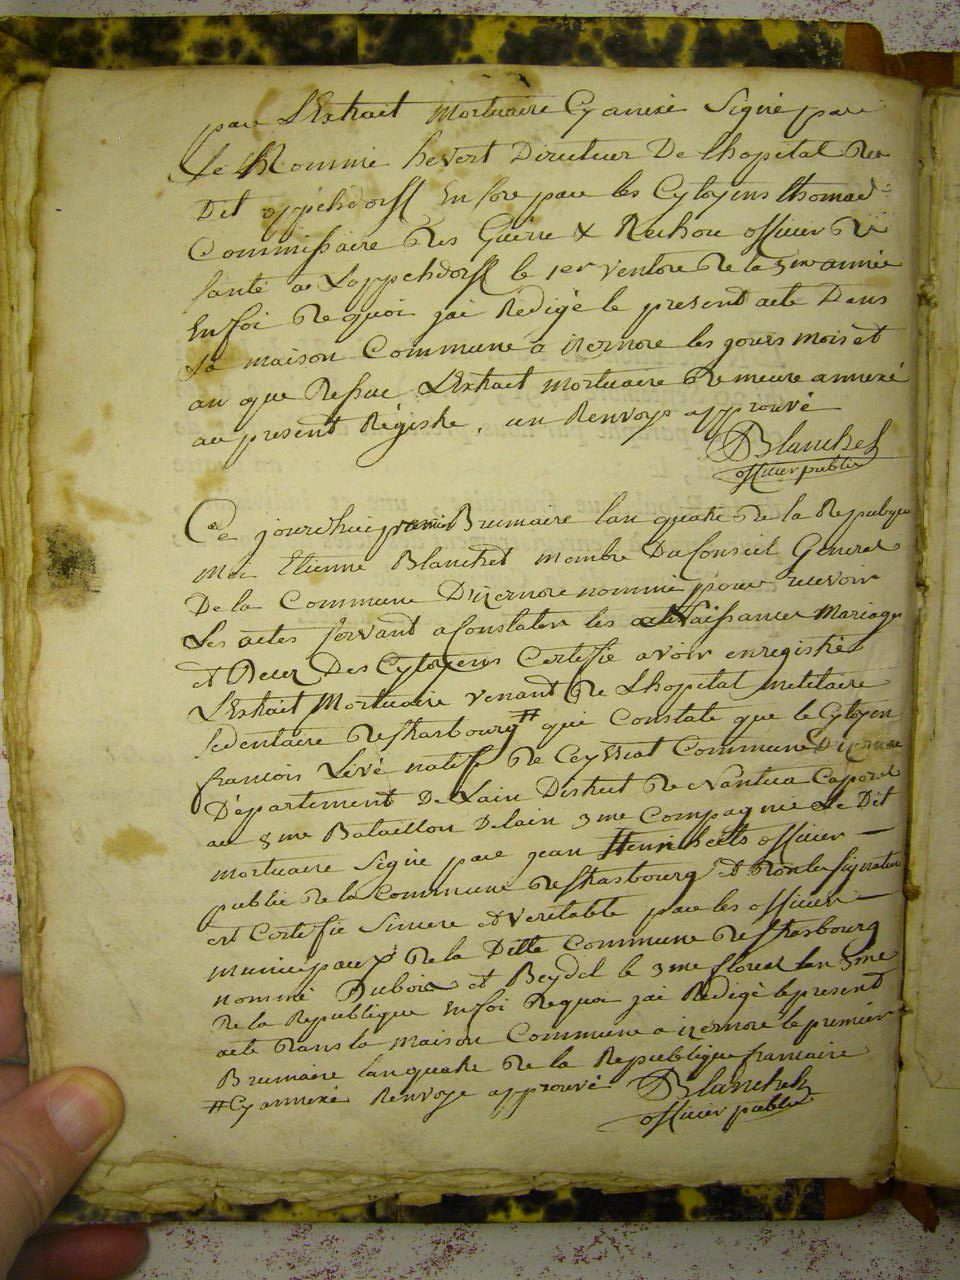 par L'Extrait Mortuaire Cy annexé Signé par
Le Nommé hevert Directeur De Lhopital du
Dit oppehdorff Enfore par les Cytoyens thomas
Commissaire des Guerre & Rechou officier de
santé a Loppehdorff le 1er ventose de la 3me année
En foi de quoi jai Redigé le present acte Dans
La maison Commune a izernore les jours mois et
an que Dessus L'Extrait mortuaire Demeure annexé
au present Régistre, un Renvoys approuvé
Blanchet
officier public
Ce jourdhuis premier Brumaire lan quatre de la Republique
Moi Etienne Blanchet membre Du Conseil General
De la Commune D'izernore nommé pour recevoir
Les actes servant a Constater les Naissances Mariages
et Decez Des Cytoyens Certifie avoir enregistré
L'Extrait Mortuaire venant de L'hopital militaire
sedentaire de strasbourg # qui Constate que le Cytoyen
francois Livé natif de Ceyssiat Commune D'izernore
Département De Lain District de Nantua Caporal
au 8me Bataillon Delain 3me Compagnie Le Dit
mortuaire Signé par jean Henri officier
public de la Commune de strasbourg Et Dont la signature
est Certifie Sincere et veritable par les officier
municipaux de la Ditte Commune de strasbourg
nommé Dubois et Beydel le 3me floreal lan 3me
de la Republique En foi de quoi jai Redigé le present
acte dans la Maison Commune a izernore le premier
Brumaire lan quatre de la Republique francaise
# Cy annexé Renvoye approuvé Blanchet
officier public